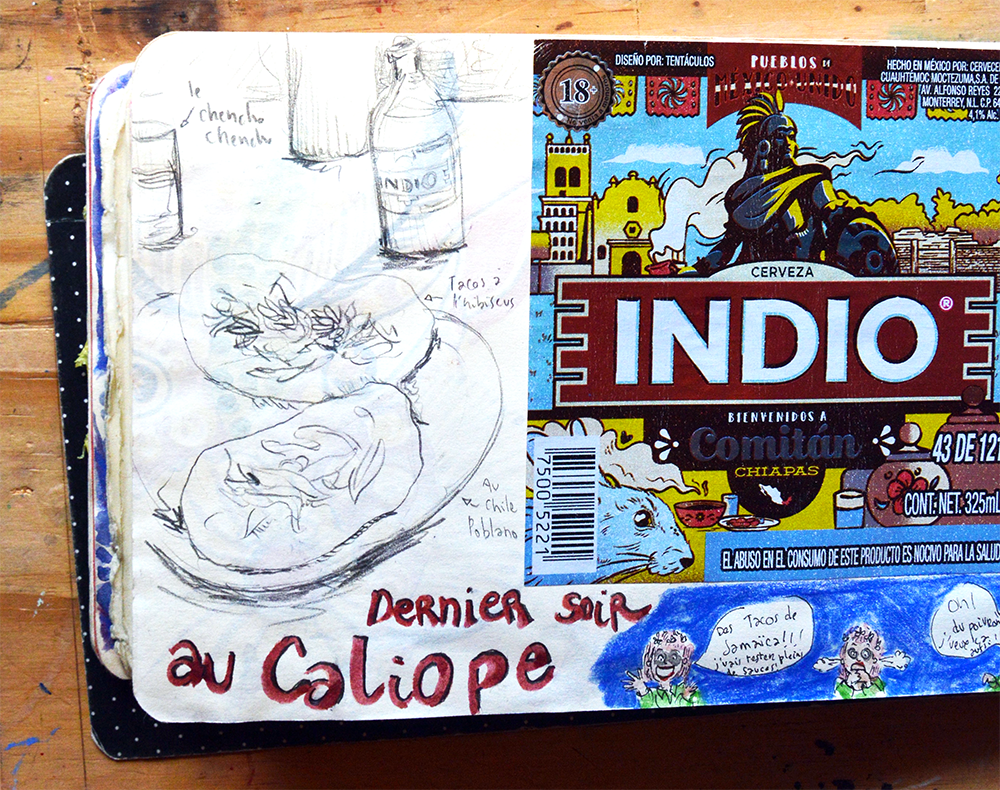 le
chencho
chencho
INDIO
Tacos à
l'hibiscus
Au
Chile
Poblano
DERNIER SOIR
au Caliope
DISEÑO POR: TENTÁCULOS
18+
PUEBLOS DE
MÉXICO UNIDO
HECHO EN MÉXICO POR: CERVECE
CUAUHTEMOC MOCTEZUMA, S.A. DE
AV. ALFONSO REYES 22
MONTERREY, N.L. C.P. 64
4,1% Alc.
CERVEZA
INDIO®
BIENVENIDOS A
Comitán
CHIAPAS
43 DE 121
CONT. NET. 325mL
7500 5221
EL ABUSO EN EL CONSUMO DE ESTE PRODUCTO ES NOCIVO PARA LA SALUD
Des Tacos de
Jamaïca!!!
j'vais rester plein
de sauces!
Oh!
du poivron
j'veux